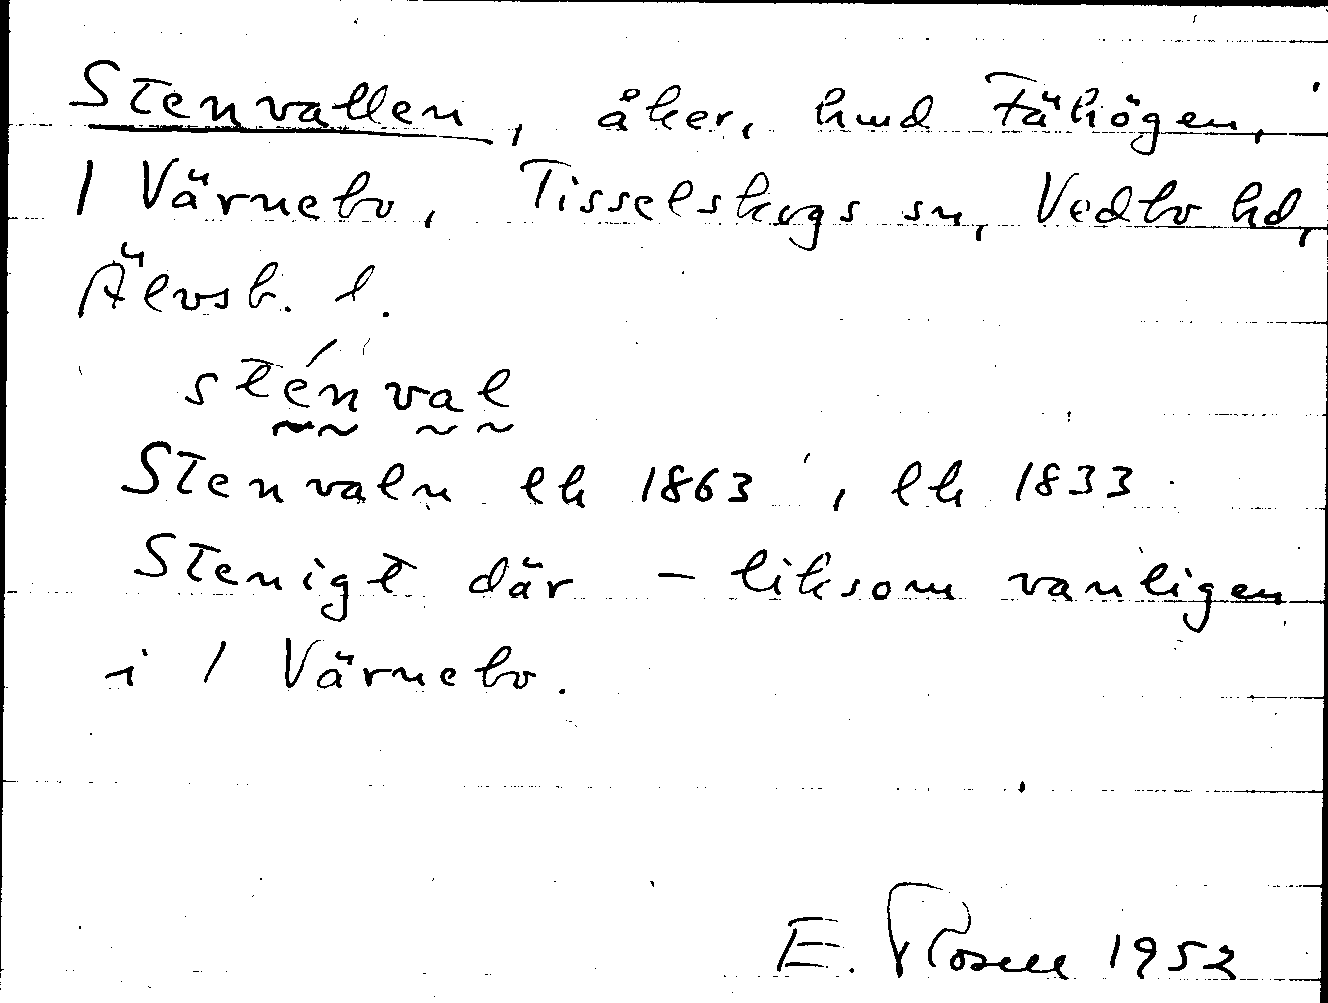 Stenvallen, åker, hmd Fähögen,
1 Värnebo, Tisselskogs sn, Vedbo hd,
Älvsb. l.
sténval
Stenvaln lk 1863, lk 1833
Stenigt där – liksom vanligen
i 1 Värnebo.
E. Rosell 1952